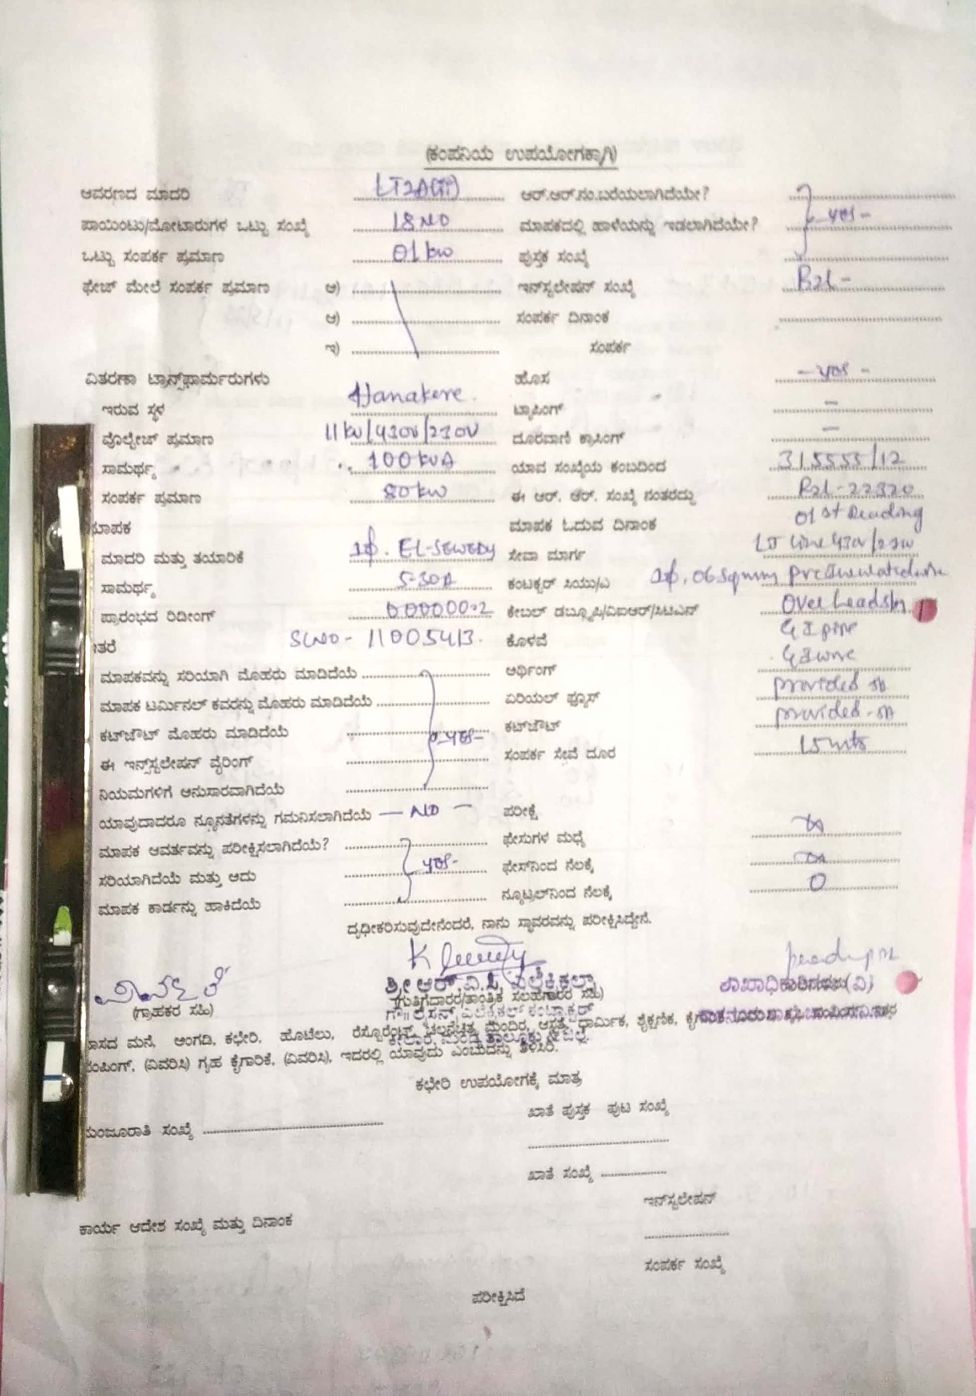 (ಕಂಪನಿಯ ಉಪಯೋಗಕ್ಕಾಗಿ)
ಆವರಣದ ಮಾದರಿ LT2A(ii) ಆರ್.ಆರ್.ನಂ.ಬರೆಯಲಾಗಿದೆಯೇ?
ಪಾಯಿಂಟು/ಮೋಟಾರುಗಳ ಒಟ್ಟು ಸಂಖ್ಯೆ 18 NO ಮಾಪಕದಲ್ಲಿ ಹಾಳೆಯನ್ನು ಇಡಲಾಗಿದೆಯೇ? - yes -
ಒಟ್ಟು ಸಂಪರ್ಕ ಪ್ರಮಾಣ 01 kw ಪುಸ್ತಕ ಸಂಖ್ಯೆ
ಫೇಜ್ ಮೇಲೆ ಸಂಪರ್ಕ ಪ್ರಮಾಣ ಅ) ಇನ್‌ಸ್ಟಲೇಷನ್ ಸಂಖ್ಯೆ
ಆ) ಸಂಪರ್ಕ ದಿನಾಂಕ
ಇ) ಸಂಪರ್ಕ
ವಿತರಣಾ ಟ್ರಾನ್ಸ್‌ಫಾರ್ಮರುಗಳು ಹೊಸ - yes -
ಇರುವ ಸ್ಥಳ Hanakere. ಟ್ಯಾಪಿಂಗ್ -
ವೊಲ್ಟೇಜ್ ಪ್ರಮಾಣ 11kv/430v/230v ದೂರವಾಣಿ ಕ್ರಾಸಿಂಗ್ -
ಸಾಮರ್ಥ್ಯ 100 kvA ಯಾವ ಸಂಖ್ಯೆಯ ಕಂಬದಿಂದ 315555/12
ಸಂಪರ್ಕ ಪ್ರಮಾಣ 80 kw ಈ ಆರ್. ಆರ್. ಸಂಖ್ಯೆ ನಂತರದ್ದು
ಮಾಪಕ ಮಾಪಕ ಓದುವ ದಿನಾಂಕ 01 st Reading
ಮಾದರಿ ಮತ್ತು ತಯಾರಿಕೆ 1ϕ. EL-SEWEDY ಸೇವಾ ಮಾರ್ಗ LT line 430/230
ಸಾಮರ್ಥ್ಯ 5-30A ಕಂಟಕ್ಟರ್ ಸಿಯು/ಎ
ಪ್ರಾರಂಭದ ರಿಡಿಂಗ್ 000000.2 ಕೇಬಲ್ ಡಬ್ಲ್ಯೂಪಿ/ವಿಐಆರ್/ಸಿಟಿಎನ್
ಇತರೆ SLNO- 11005413. ಕೊಳವೆ G I pipe
ಮಾಪಕವನ್ನು ಸರಿಯಾಗಿ ಮೊಹರು ಮಾಡಿದೆಯೆ ಅರ್ಥಿಂಗ್ G I wire
ಮಾಪಕ ಟರ್ಮಿನಲ್ ಕವರನ್ನು ಮೊಹರು ಮಾಡಿದೆಯೆ ಏರಿಯಲ್ ಫ್ಯೂಸ್ provided
ಕಟ್‌ಔಟ್ ಮೊಹರು ಮಾಡಿದೆಯೆ - yes - ಕಟ್‌ಔಟ್ provided
ಈ ಇನ್‌ಸ್ಟಲೇಷನ್ ವೈರಿಂಗ್ ಸಂಪರ್ಕ ಸೇವೆ ದೂರ 15 mts
ನಿಯಮಗಳಿಗೆ ಅನುಸಾರವಾಗಿದೆಯೆ
ಯಾವುದಾದರೂ ನ್ಯೂನತೆಗಳನ್ನು ಗಮನಿಸಲಾಗಿದೆಯೆ — NO — ಪರೀಕ್ಷೆ
ಮಾಪಕ ಆವರ್ತವನ್ನು ಪರೀಕ್ಷಿಸಲಾಗಿದೆಯೆ? ಫೇಸುಗಳ ಮಧ್ಯೆ ∞
ಸರಿಯಾಗಿದೆಯೆ ಮತ್ತು ಅದು yes- ಫೇಸ್‌ನಿಂದ ನೆಲಕ್ಕೆ ∞
ಮಾಪಕ ಕಾರ್ಡನ್ನು ಹಾಕಿದೆಯೆ ನ್ಯೂಟ್ರಲ್‌ನಿಂದ ನೆಲಕ್ಕೆ 0
ದೃಢೀಕರಿಸುವುದೇನೆಂದರೆ, ನಾನು ಸ್ಥಾವರವನ್ನು ಪರೀಕ್ಷಿಸಿದ್ದೇನೆ.
ಶ್ರೀ ಆರ್.ವಿ.ಸಿ. ಎಲೆಕ್ಟ್ರಿಕಲ್ಸ್
(ಗ್ರಾಹಕರ ಸಹಿ) (ಗುತ್ತಿಗೆದಾರರ/ತಾಂತ್ರಿಕ ಸಲಹೆಗಾರರ ಸಹಿ)
ವಾಸದ ಮನೆ, ಅಂಗಡಿ, ಕಛೇರಿ, ಹೊಟೆಲು, ರೆಸ್ಟೋರೆಂಟ್, ಚಲನಚಿತ್ರ ಮಂದಿರ, ಆಸ್ಪತ್ರೆ, ಧಾರ್ಮಿಕ, ಶೈಕ್ಷಣಿಕ,
ಪಂಪಿಂಗ್, (ವಿವರಿಸಿ) ಗೃಹ ಕೈಗಾರಿಕೆ, (ವಿವರಿಸಿ), ಇದರಲ್ಲಿ ಯಾವುದು ಎಂಬುದನ್ನು ತಿಳಿಸಿರಿ.
ಕಛೇರಿ ಉಪಯೋಗಕ್ಕೆ ಮಾತ್ರ
ಖಾತೆ ಪುಸ್ತಕ ಪುಟ ಸಂಖ್ಯೆ
ಮಂಜೂರಾತಿ ಸಂಖ್ಯೆ
ಖಾತೆ ಸಂಖ್ಯೆ
ಇನ್‌ಸ್ಟಲೇಷನ್
ಕಾರ್ಯ ಆದೇಶ ಸಂಖ್ಯೆ ಮತ್ತು ದಿನಾಂಕ
ಸಂಪರ್ಕ ಸಂಖ್ಯೆ
ಪರೀಕ್ಷಿಸಿದೆ